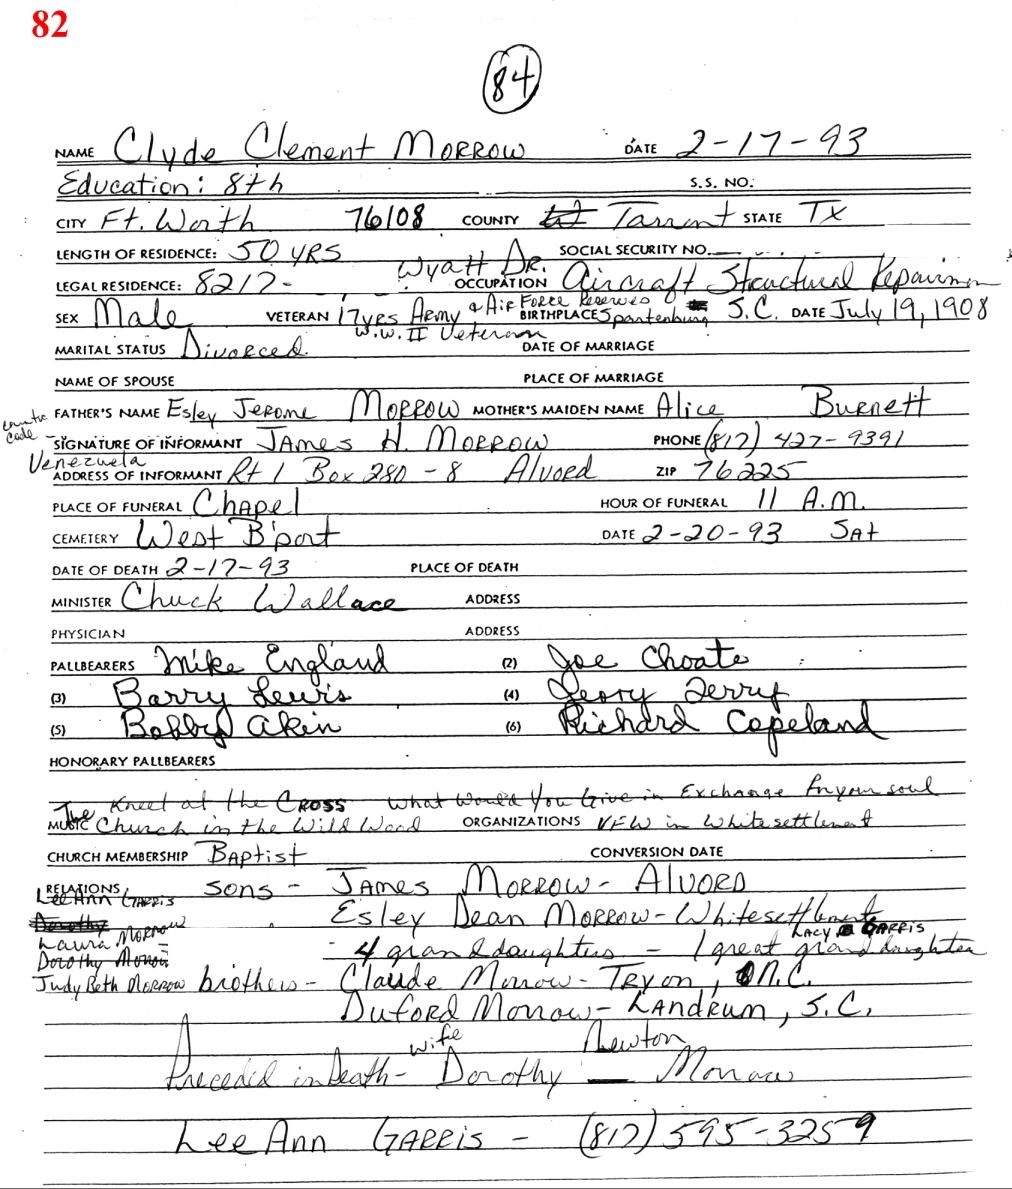 82
84
NAME Clyde Clement Morrow DATE 2-17-93
Education: 8th S.S. NO.
CITY Ft. Worth 76108 COUNTY Tarrant STATE Tx
LENGTH OF RESIDENCE: 50 yrs SOCIAL SECURITY NO.
LEGAL RESIDENCE: 8217- Wyatt Dr. OCCUPATION Aircraft Structural Repairman
SEX Male VETERAN 17yrs Army & Air Force Reserves BIRTHPLACE Spartenburg S.C. DATE July 19, 1908
W.W. II Veteran
MARITAL STATUS Divorced DATE OF MARRIAGE
NAME OF SPOUSE PLACE OF MARRIAGE
FATHER'S NAME Esley Jerome Morrow MOTHER'S MAIDEN NAME Alice Burnett
code -
SIGNATURE OF INFORMANT James H. Morrow PHONE (817) 427-9391
Venezuela
ADDRESS OF INFORMANT Rt 1 Box 280-8 Alvord ZIP 76225
PLACE OF FUNERAL Chapel HOUR OF FUNERAL 11 A.M.
CEMETERY West B'port DATE 2-20-93 Sat
DATE OF DEATH 2-17-93 PLACE OF DEATH
MINISTER Chuck Wallace ADDRESS
PHYSICIAN ADDRESS
PALLBEARERS Mike England (2) Joe Choate
(3) Barry Lewis (4) Terry
(5) Bobby Akin (6) Richard Copeland
HONORARY PALLBEARERS
Kneel at the Cross What Would You Give in Exchange For your soul
MUSIC The Church in the Wild Wood ORGANIZATIONS VFW in Whitesettlement
CHURCH MEMBERSHIP Baptist CONVERSION DATE
RELATIONS sons - James Morrow - Alvord
LeeAnn Garris
Dorothy Esley Dean Morrow - Whitesettlement
Laura Morrow Lacy Garris
Dorothy Morrow 4 granddaughters - 1 great granddaughter
Judy Beth Morrow brothers - Claude Morrow - Tryon, N.C.
Duford Morrow - Landrum, S.C.
wife Newton
Preceded in Death - Dorothy Morrow
LeeAnn Garris - (817) 595-3259